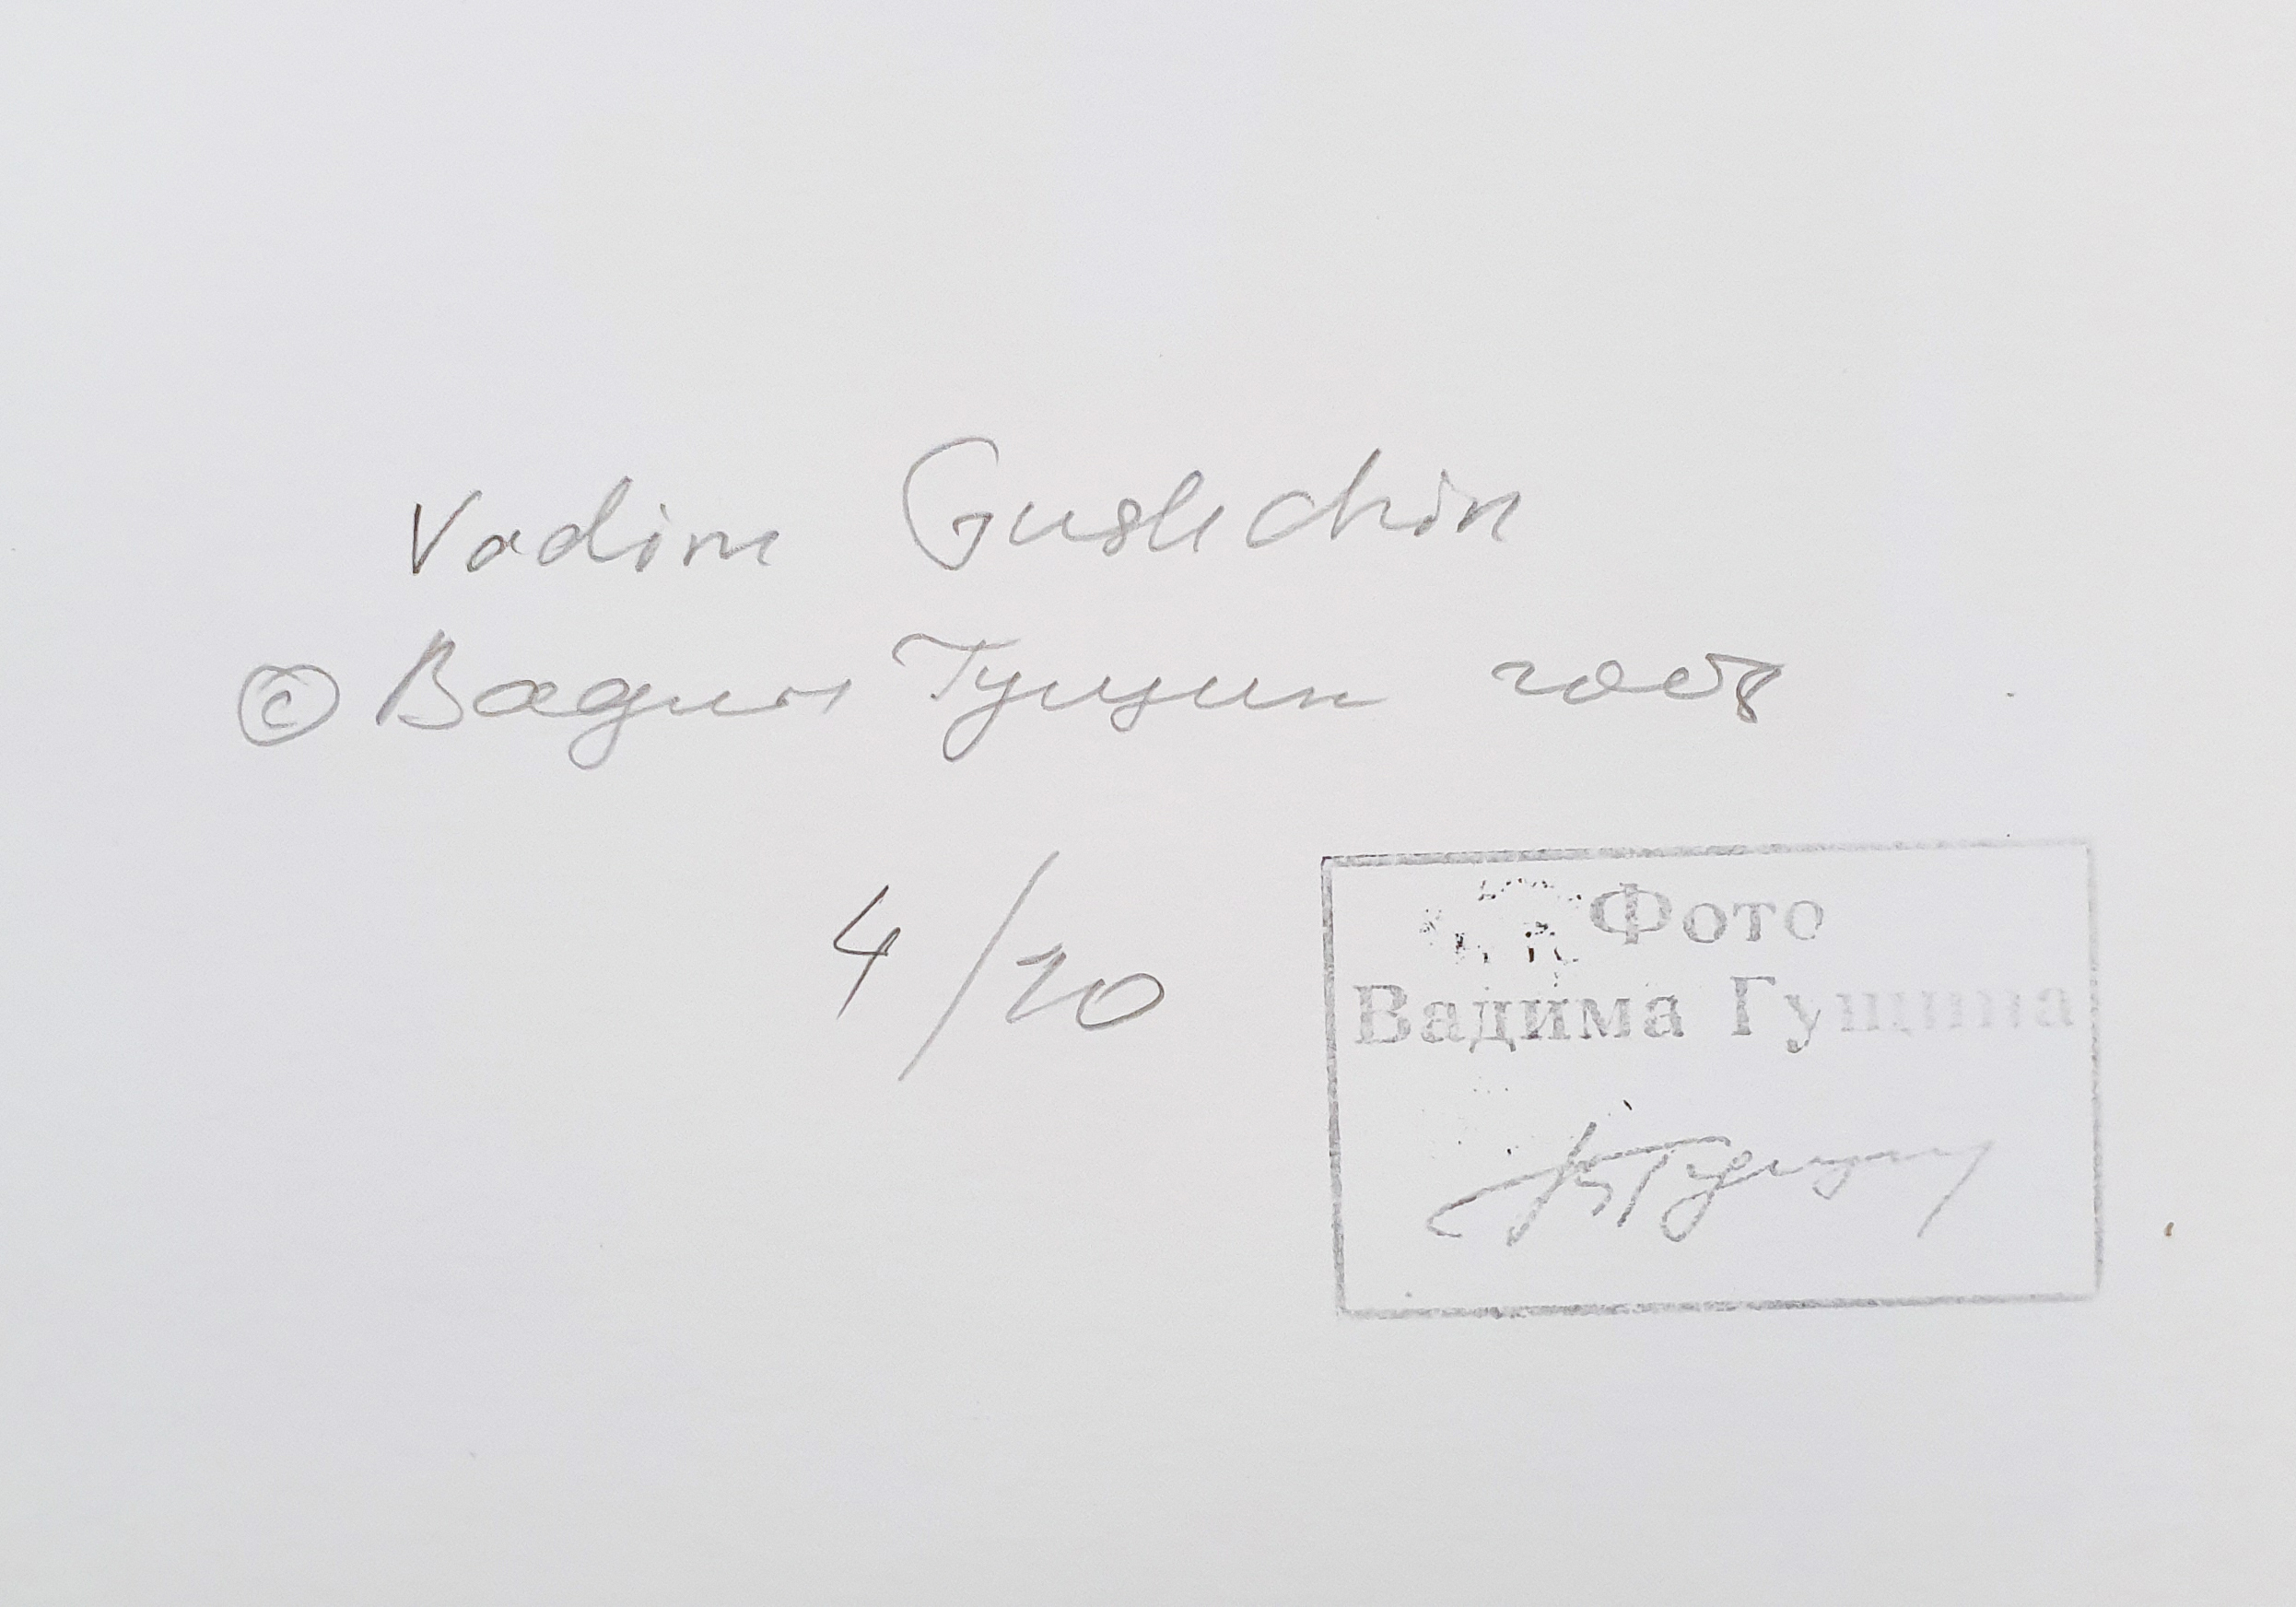 Vadim Gushchin
© Вадим Гущин 2008
4/20
Фото
Вадима Гущина
ВГущин